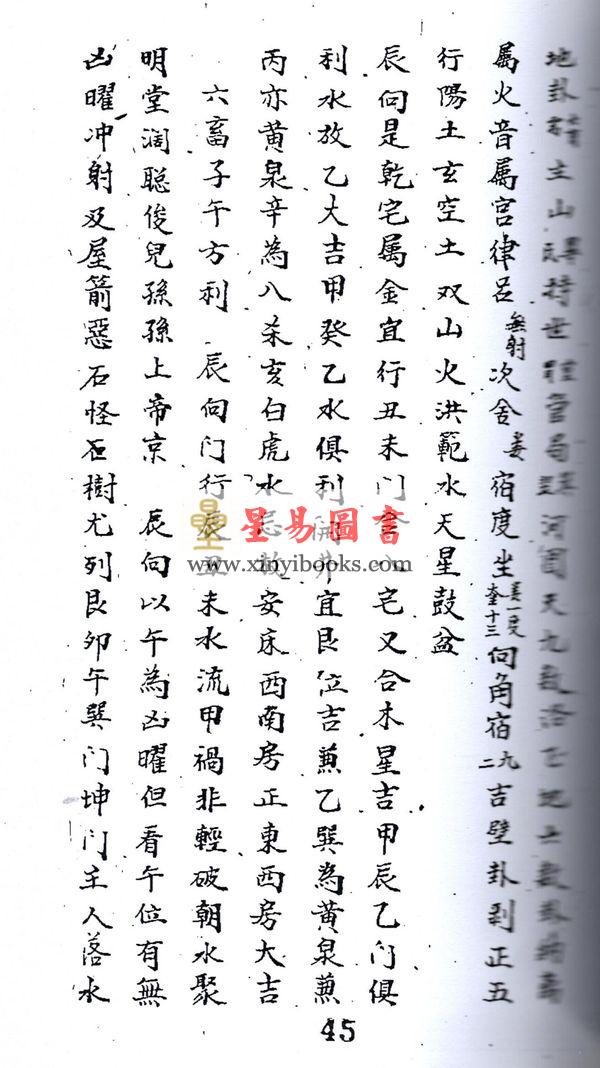 地卦 主山 持世 管局 河圖天九數洛
属火音属宫律吕無射次舍娄宿度坐娄一度奎十三向角宿九二吉壁卦剥正五
行陽土玄空土双山火洪範水天星鼓盆
辰向是乾宅属金宜行丑未门 宅又合木星吉甲辰乙门俱
利水放乙大吉甲癸乙水俱利開井宜艮位吉兼乙巽為黄泉兼
丙亦黄泉辛為八杀亥白虎水忌放安床西南房正東西房大吉
六畜子午方利 辰向门行辰丑未水流甲禍非輕破朝水聚
明堂濶聪俊兒孫孫上帝京 辰向以午為凶曜但看午位有無
凶曜冲射及屋箭惡石怪石樹尤列艮卯午巽门坤门主人落水
星易圖書
www.xinyibooks.com
45